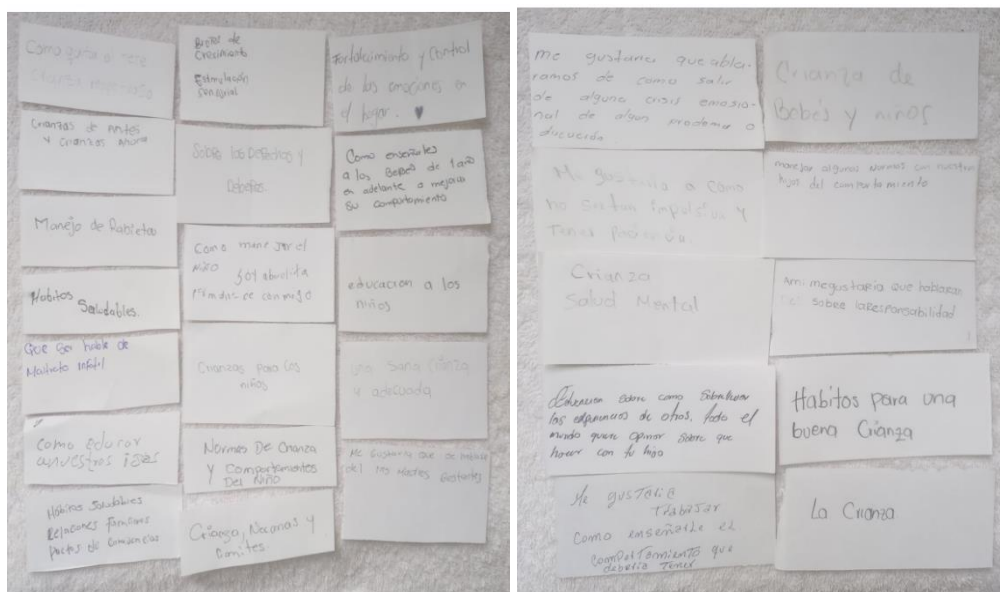 Como quitar el tete
Crianzas de Antes
y crianzas Ahora
Manejo de Rabietas
Habitos
Saludables.
Que ser hable de
Maltrato infatil
Como educar
Habitos Saludables
Relaciones familiares
Pactos de convivencias
Brotes de
Crecimiento
Estimulación
Sensorial
Sobre los Derechos y
Deberes.
Como manejar el
niño
soy abuelita
conmigo
Crianzas para los
niños
Normas De Crianza
y Comportamientos
Del Niño
Crianza, Normas y
Limites.
Fortalecimiento y Control
de las emociones en
el hogar.
Como enseñarles
a los Bebes de 1 año
en adelante a mejorar
su comportamiento
educacion a los
niños
una Sana Crianza
y adecuada
Me Gustaria que se hable
del las Madres Gestantes
me gustaria que abla-
ramos de como salir
de alguna crisis emosio-
nal de algun problema o
discuerdo
Me gustaria a como
no sertan impulsiva y
Tener Paciencia.
Crianza
Salud Mental
Educacion sobre como sobrellevar
las experiencias de otros, todo el
mundo quiere opinar sobre que
hacer con tu hijo
Me gustaria
Trabajar
Como enseñarle el
comportamiento que
deberia Tener
Crianza de
Bebés y niños
manejar algunas normas con nuestro
hijos del comportamiento
Ami megustaria que hablaran
sobre laResponsabilidad
Habitos para una
buena Crianza
La Crianza